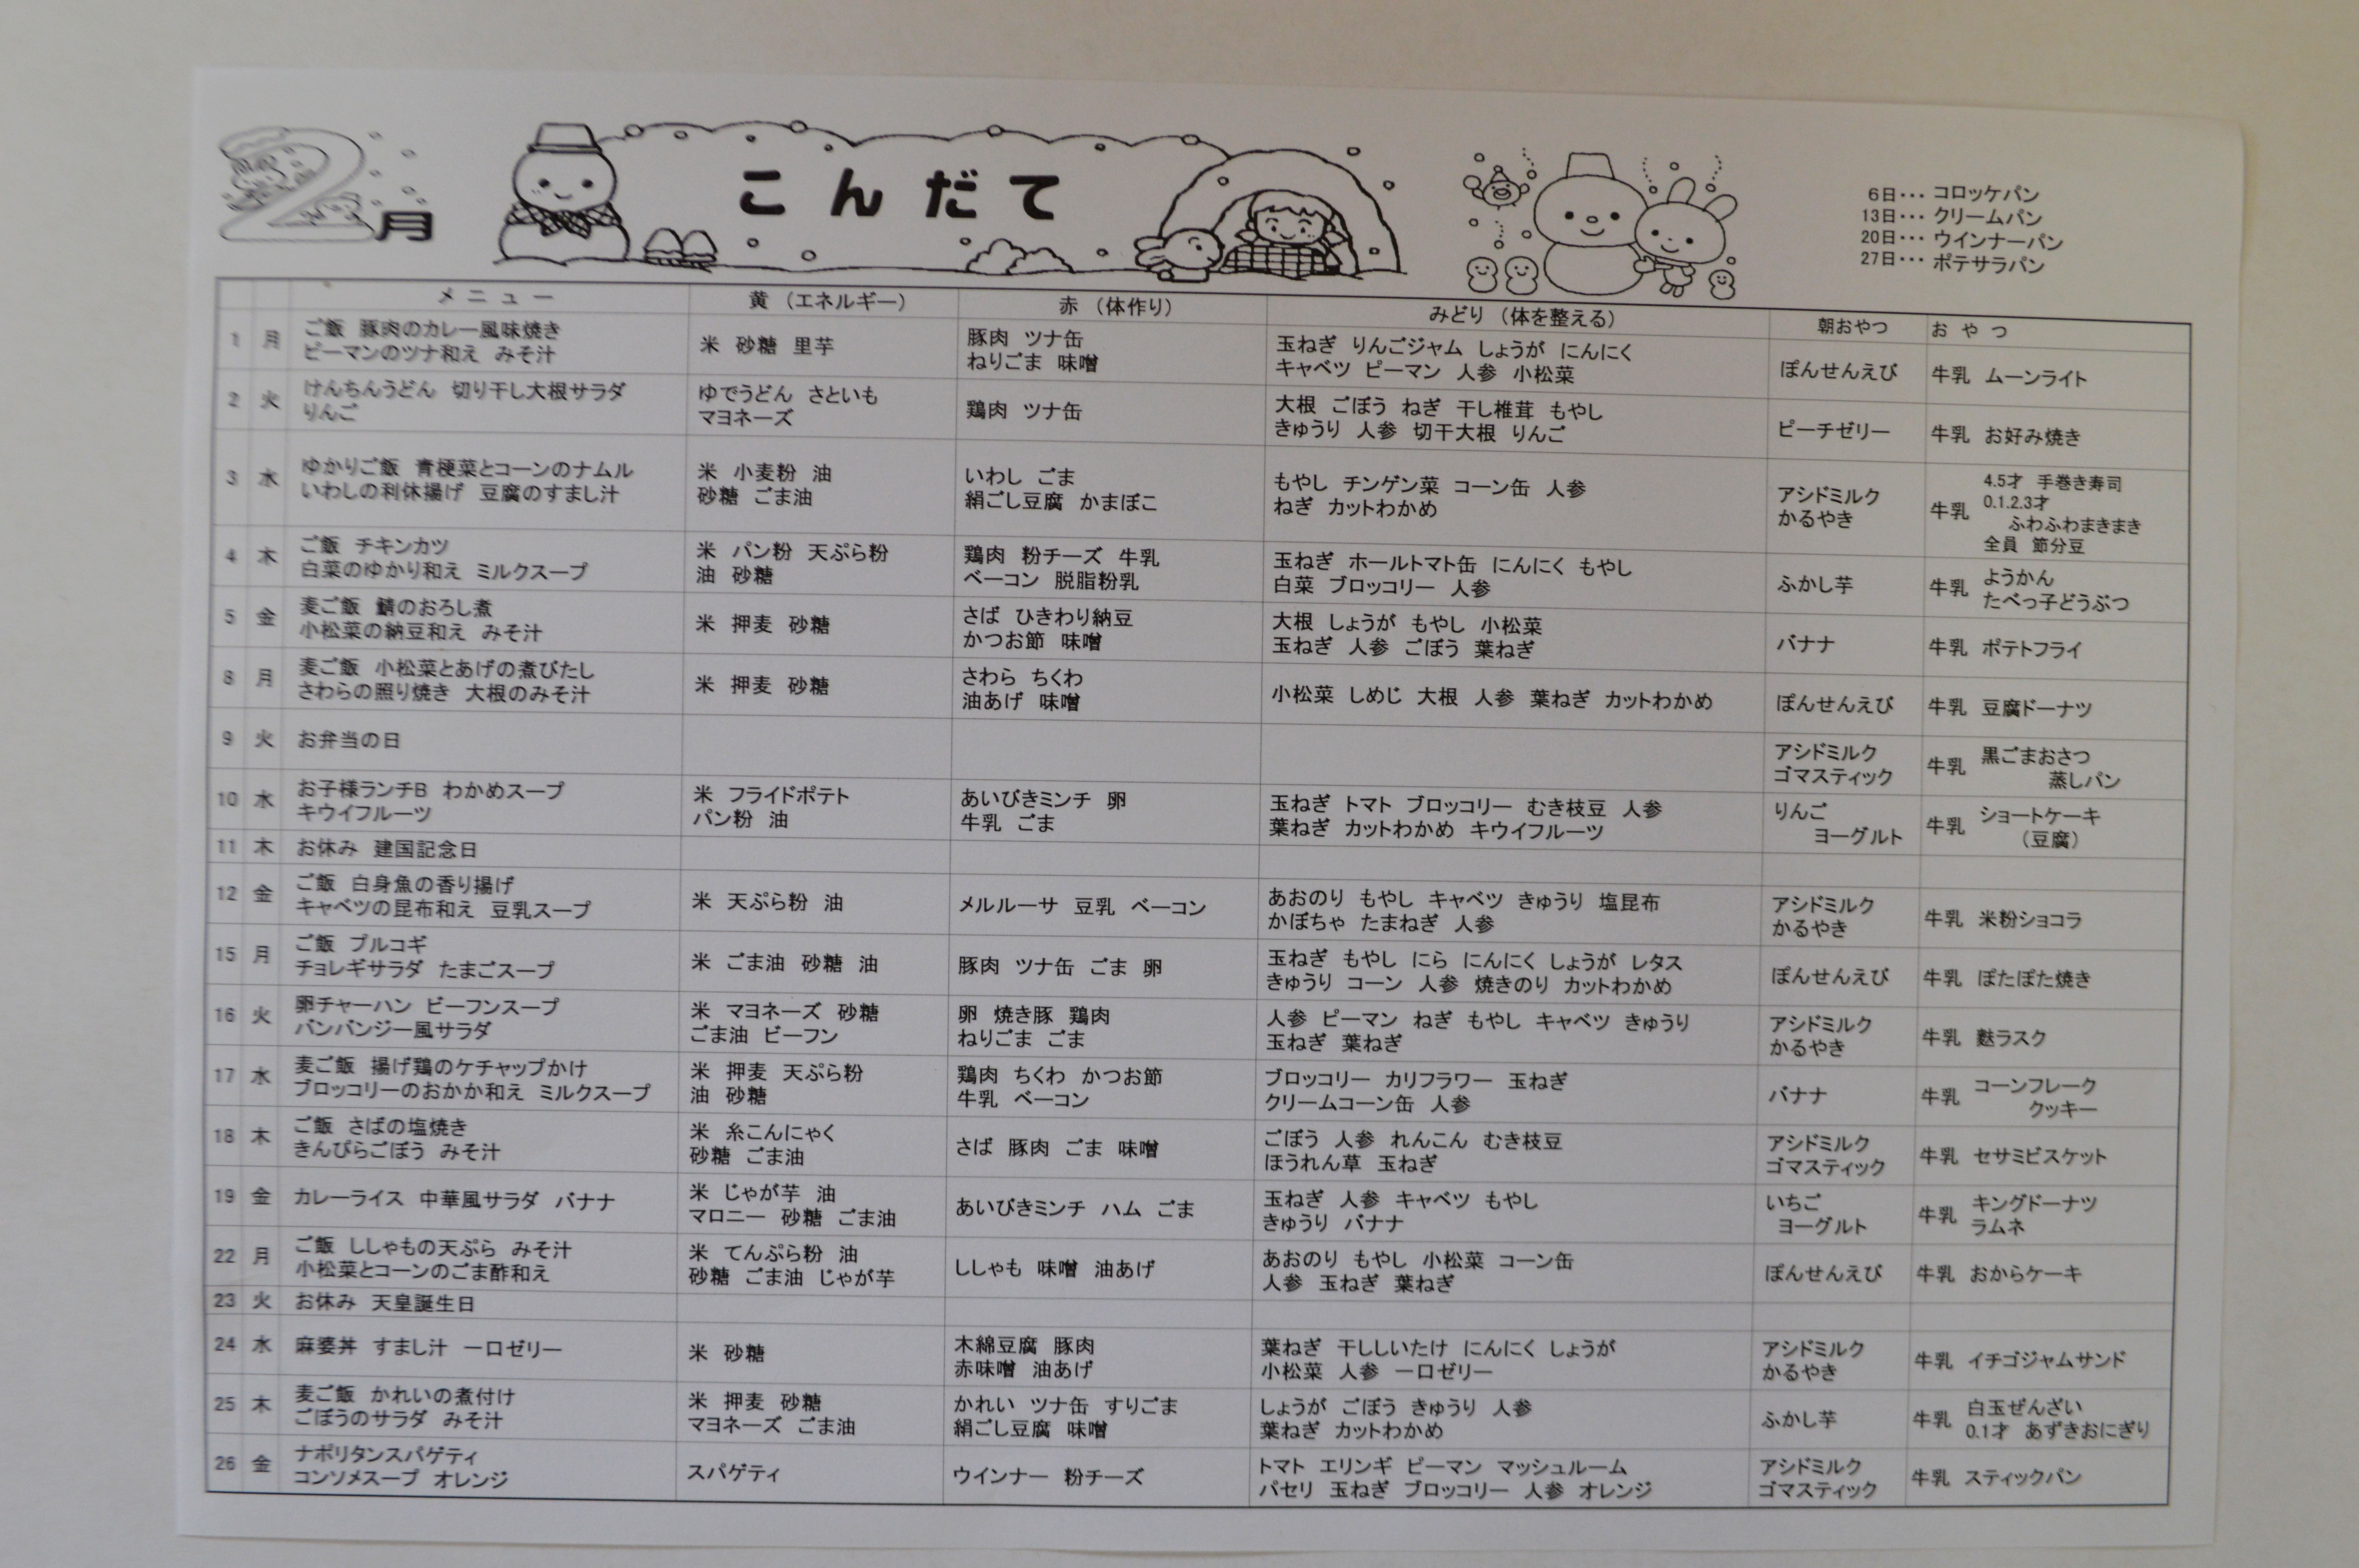 2月
こんだて
6日・・・ コロッケパン
13日・・・ クリームパン
20日・・・ ウインナーパン
27日・・・ ポテサラパン
メニュー 黄（エネルギー） 赤（体作り） みどり（体を整える） 朝おやつ おやつ
1 月 ご飯 豚肉のカレー風味焼き
ピーマンのツナ和え みそ汁
米 砂糖 里芋
豚肉 ツナ缶
ねりごま 味噌
玉ねぎ りんごジャム しょうが にんにく
キャベツ ピーマン 人参 小松菜
ぽんせんえび
牛乳 ムーンライト
2 火 けんちんうどん 切り干し大根サラダ
りんご
ゆでうどん さといも
マヨネーズ
鶏肉 ツナ缶
大根 ごぼう ねぎ 干し椎茸 もやし
きゅうり 人参 切干大根 りんご
ピーチゼリー
牛乳 お好み焼き
3 水 ゆかりご飯 青梗菜とコーンのナムル
いわしの利休揚げ 豆腐のすまし汁
米 小麦粉 油
砂糖 ごま油
いわし ごま
絹ごし豆腐 かまぼこ
もやし チンゲン菜 コーン缶 人参
ねぎ カットわかめ
アシドミルク
かるやき
牛乳 4.5才 手巻き寿司
0.1.2.3才
ふわふわまきまき
全員 節分豆
4 木 ご飯 チキンカツ
白菜のゆかり和え ミルクスープ
米 パン粉 天ぷら粉
油 砂糖
鶏肉 粉チーズ 牛乳
ベーコン 脱脂粉乳
玉ねぎ ホールトマト缶 にんにく もやし
白菜 ブロッコリー 人参
ふかし芋
牛乳 ようかん
たべっ子どうぶつ
5 金 麦ご飯 鯖のおろし煮
小松菜の納豆和え みそ汁
米 押麦 砂糖
さば ひきわり納豆
かつお節 味噌
大根 しょうが もやし 小松菜
玉ねぎ 人参 ごぼう 葉ねぎ
バナナ
牛乳 ポテトフライ
8 月 麦ご飯 小松菜とあげの煮びたし
さわらの照り焼き 大根のみそ汁
米 押麦 砂糖
さわら ちくわ
油あげ 味噌
小松菜 しめじ 大根 人参 葉ねぎ カットわかめ
ぽんせんえび
牛乳 豆腐ドーナツ
9 火 お弁当の日
アシドミルク
ゴマスティック
牛乳 黒ごまおさつ
蒸しパン
10 水 お子様ランチB わかめスープ
キウイフルーツ
米 フライドポテト
パン粉 油
あいびきミンチ 卵
牛乳 ごま
玉ねぎ トマト ブロッコリー むき枝豆 人参
葉ねぎ カットわかめ キウイフルーツ
りんご
ヨーグルト
牛乳 ショートケーキ
（豆腐）
11 木 お休み 建国記念日
12 金 ご飯 白身魚の香り揚げ
キャベツの昆布和え 豆乳スープ
米 天ぷら粉 油
メルルーサ 豆乳 ベーコン
あおのり もやし キャベツ きゅうり 塩昆布
かぼちゃ たまねぎ 人参
アシドミルク
かるやき
牛乳 米粉ショコラ
15 月 ご飯 プルコギ
チョレギサラダ たまごスープ
米 ごま油 砂糖 油
豚肉 ツナ缶 ごま 卵
玉ねぎ もやし にら にんにく しょうが レタス
きゅうり コーン 人参 焼きのり カットわかめ
ぽんせんえび
牛乳 ぽたぽた焼き
16 火 卵チャーハン ビーフンスープ
バンバンジー風サラダ
米 マヨネーズ 砂糖
ごま油 ビーフン
卵 焼き豚 鶏肉
ねりごま ごま
人参 ピーマン ねぎ もやし キャベツ きゅうり
玉ねぎ 葉ねぎ
アシドミルク
かるやき
牛乳 麩ラスク
17 水 麦ご飯 揚げ鶏のケチャップかけ
ブロッコリーのおかか和え ミルクスープ
米 押麦 天ぷら粉
油 砂糖
鶏肉 ちくわ かつお節
牛乳 ベーコン
ブロッコリー カリフラワー 玉ねぎ
クリームコーン缶 人参
バナナ
牛乳 コーンフレーク
クッキー
18 木 ご飯 さばの塩焼き
きんぴらごぼう みそ汁
米 糸こんにゃく
砂糖 ごま油
さば 豚肉 ごま 味噌
ごぼう 人参 れんこん むき枝豆
ほうれん草 玉ねぎ
アシドミルク
ゴマスティック
牛乳 セサミビスケット
19 金 カレーライス 中華風サラダ バナナ
米 じゃが芋 油
マロニー 砂糖 ごま油
あいびきミンチ ハム ごま
玉ねぎ 人参 キャベツ もやし
きゅうり バナナ
いちご
ヨーグルト
牛乳 キングドーナツ
ラムネ
22 月 ご飯 ししゃもの天ぷら みそ汁
小松菜とコーンのごま酢和え
米 てんぷら粉 油
砂糖 ごま油 じゃが芋
ししゃも 味噌 油あげ
あおのり もやし 小松菜 コーン缶
人参 玉ねぎ 葉ねぎ
ぽんせんえび
牛乳 おからケーキ
23 火 お休み 天皇誕生日
24 水 麻婆丼 すまし汁 一口ゼリー
米 砂糖
木綿豆腐 豚肉
赤味噌 油あげ
葉ねぎ 干ししいたけ にんにく しょうが
小松菜 人参 一口ゼリー
アシドミルク
かるやき
牛乳 イチゴジャムサンド
25 木 麦ご飯 かれいの煮付け
ごぼうのサラダ みそ汁
米 押麦 砂糖
マヨネーズ ごま油
かれい ツナ缶 すりごま
絹ごし豆腐 味噌
しょうが ごぼう きゅうり 人参
葉ねぎ カットわかめ
ふかし芋
牛乳 白玉ぜんざい
0.1才 あずきおにぎり
26 金 ナポリタンスパゲティ
コンソメスープ オレンジ
スパゲティ
ウインナー 粉チーズ
トマト エリンギ ピーマン マッシュルーム
パセリ 玉ねぎ ブロッコリー 人参 オレンジ
アシドミルク
ゴマスティック
牛乳 スティックパン